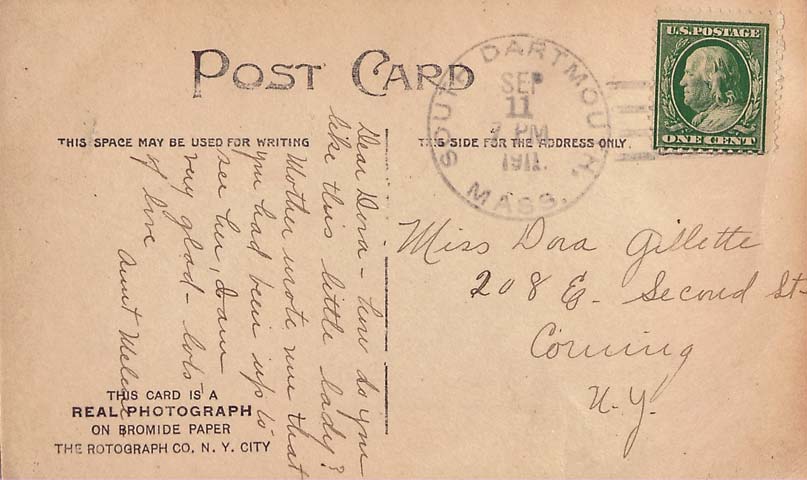 POST CARD
THIS SPACE MAY BE USED FOR WRITING
THIS SIDE FOR THE ADDRESS ONLY.
SOUTH DARTMOUTH,
SEP
11
7 PM
1911.
MASS.
U.S. POSTAGE
ONE CENT
Dear Dora - how do you
like this little lady?
Mother wrote me that
you had been up to
see her, I am
very glad - lots
of love
Aunt
Miss Dora Gillette
208 E. Second St-
Corning
N.Y.
THIS CARD IS A
REAL PHOTOGRAPH
ON BROMIDE PAPER
THE ROTOGRAPH CO. N. Y. CITY